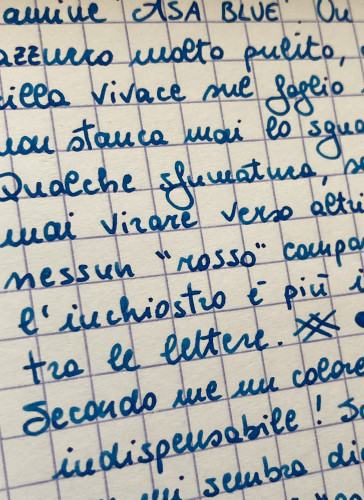 ASA BLUE. Un
azzurro molto pulito,
brilla vivace sul foglio
non stanca mai lo sgua
Qualche sfumatura, se
mai virare verso altri
nessun "rosso" compa
e l'inchiostro è più i
tra le lettere.
Secondo me un colore
indispensabile! Se
mi sembra di